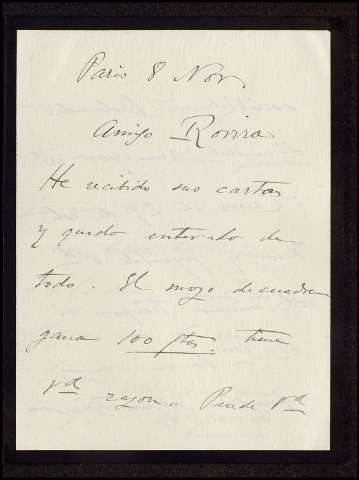 Paris 8 Nov.
Amigo Rovira
He recibido sus cartas
y quedo enterado de
todo. El mozo de cuadra
gana 100 ptas. tiene
Vd razon. Puede Vd